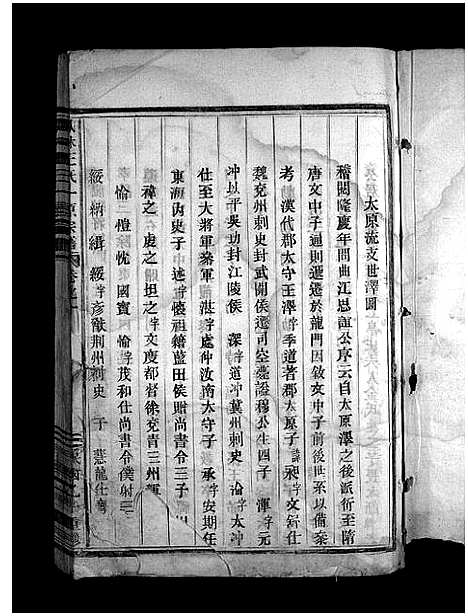 太原流支世澤圖
稽閱隆慶年間曲江思誼公序云自太原澤之後派衍至隋
唐文中子通則遷遯於龍門因敘文中子前後世系以備案
考 漢代郡太守王澤 字季道者郡太原子 昶 字文舒仕
魏兗州刺史封武關侯遷司空薨諡穆公生四子 渾 字元
冲以平吳功封江陵侯 深 字道冲冀州刺史 淪 字太冲
仕至大將軍叅軍 湛 字處冲汝南太守子 承 字安期任
東海內史子 述 字懷祖籍藍田侯贈尚書令三子
道 禕之 處之 坦之 字文度都督徐兗青三州
愉 愷 除 忱 國寶 愉 字茂和仕尚書令僕射二
綏 納 緝 綏 字彥猷荊州刺史 子 慧龍仕